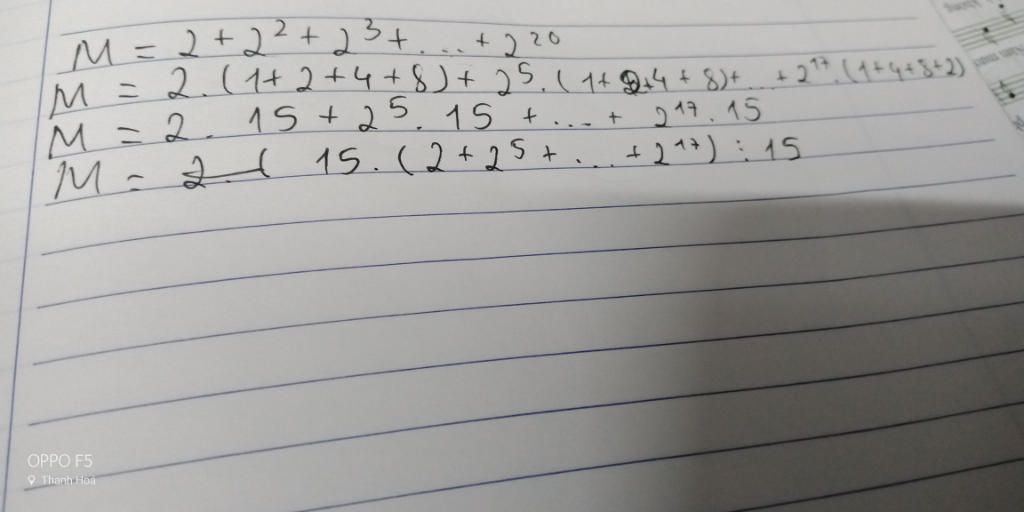 M = 2 + 2² + 2³ + ... + 2²⁰
M = 2. (1+2+4+8) + 2⁵. (1+2+4+8)+ ... + 2¹⁷. (1+4+8+2)
M = 2. 15 + 2⁵. 15 + ... + 2¹⁷. 15
M = 15. (2 + 2⁵ + ... + 2¹⁷) : 15
OPPO F5
Thanh Hoá